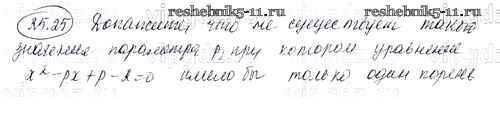 www.reshak.ru www.reshak.ru
25.25 Докажите, что не существует такого
значения параметра p, при котором уравнение
x² - px + p - 2 = 0 имело бы только один корень